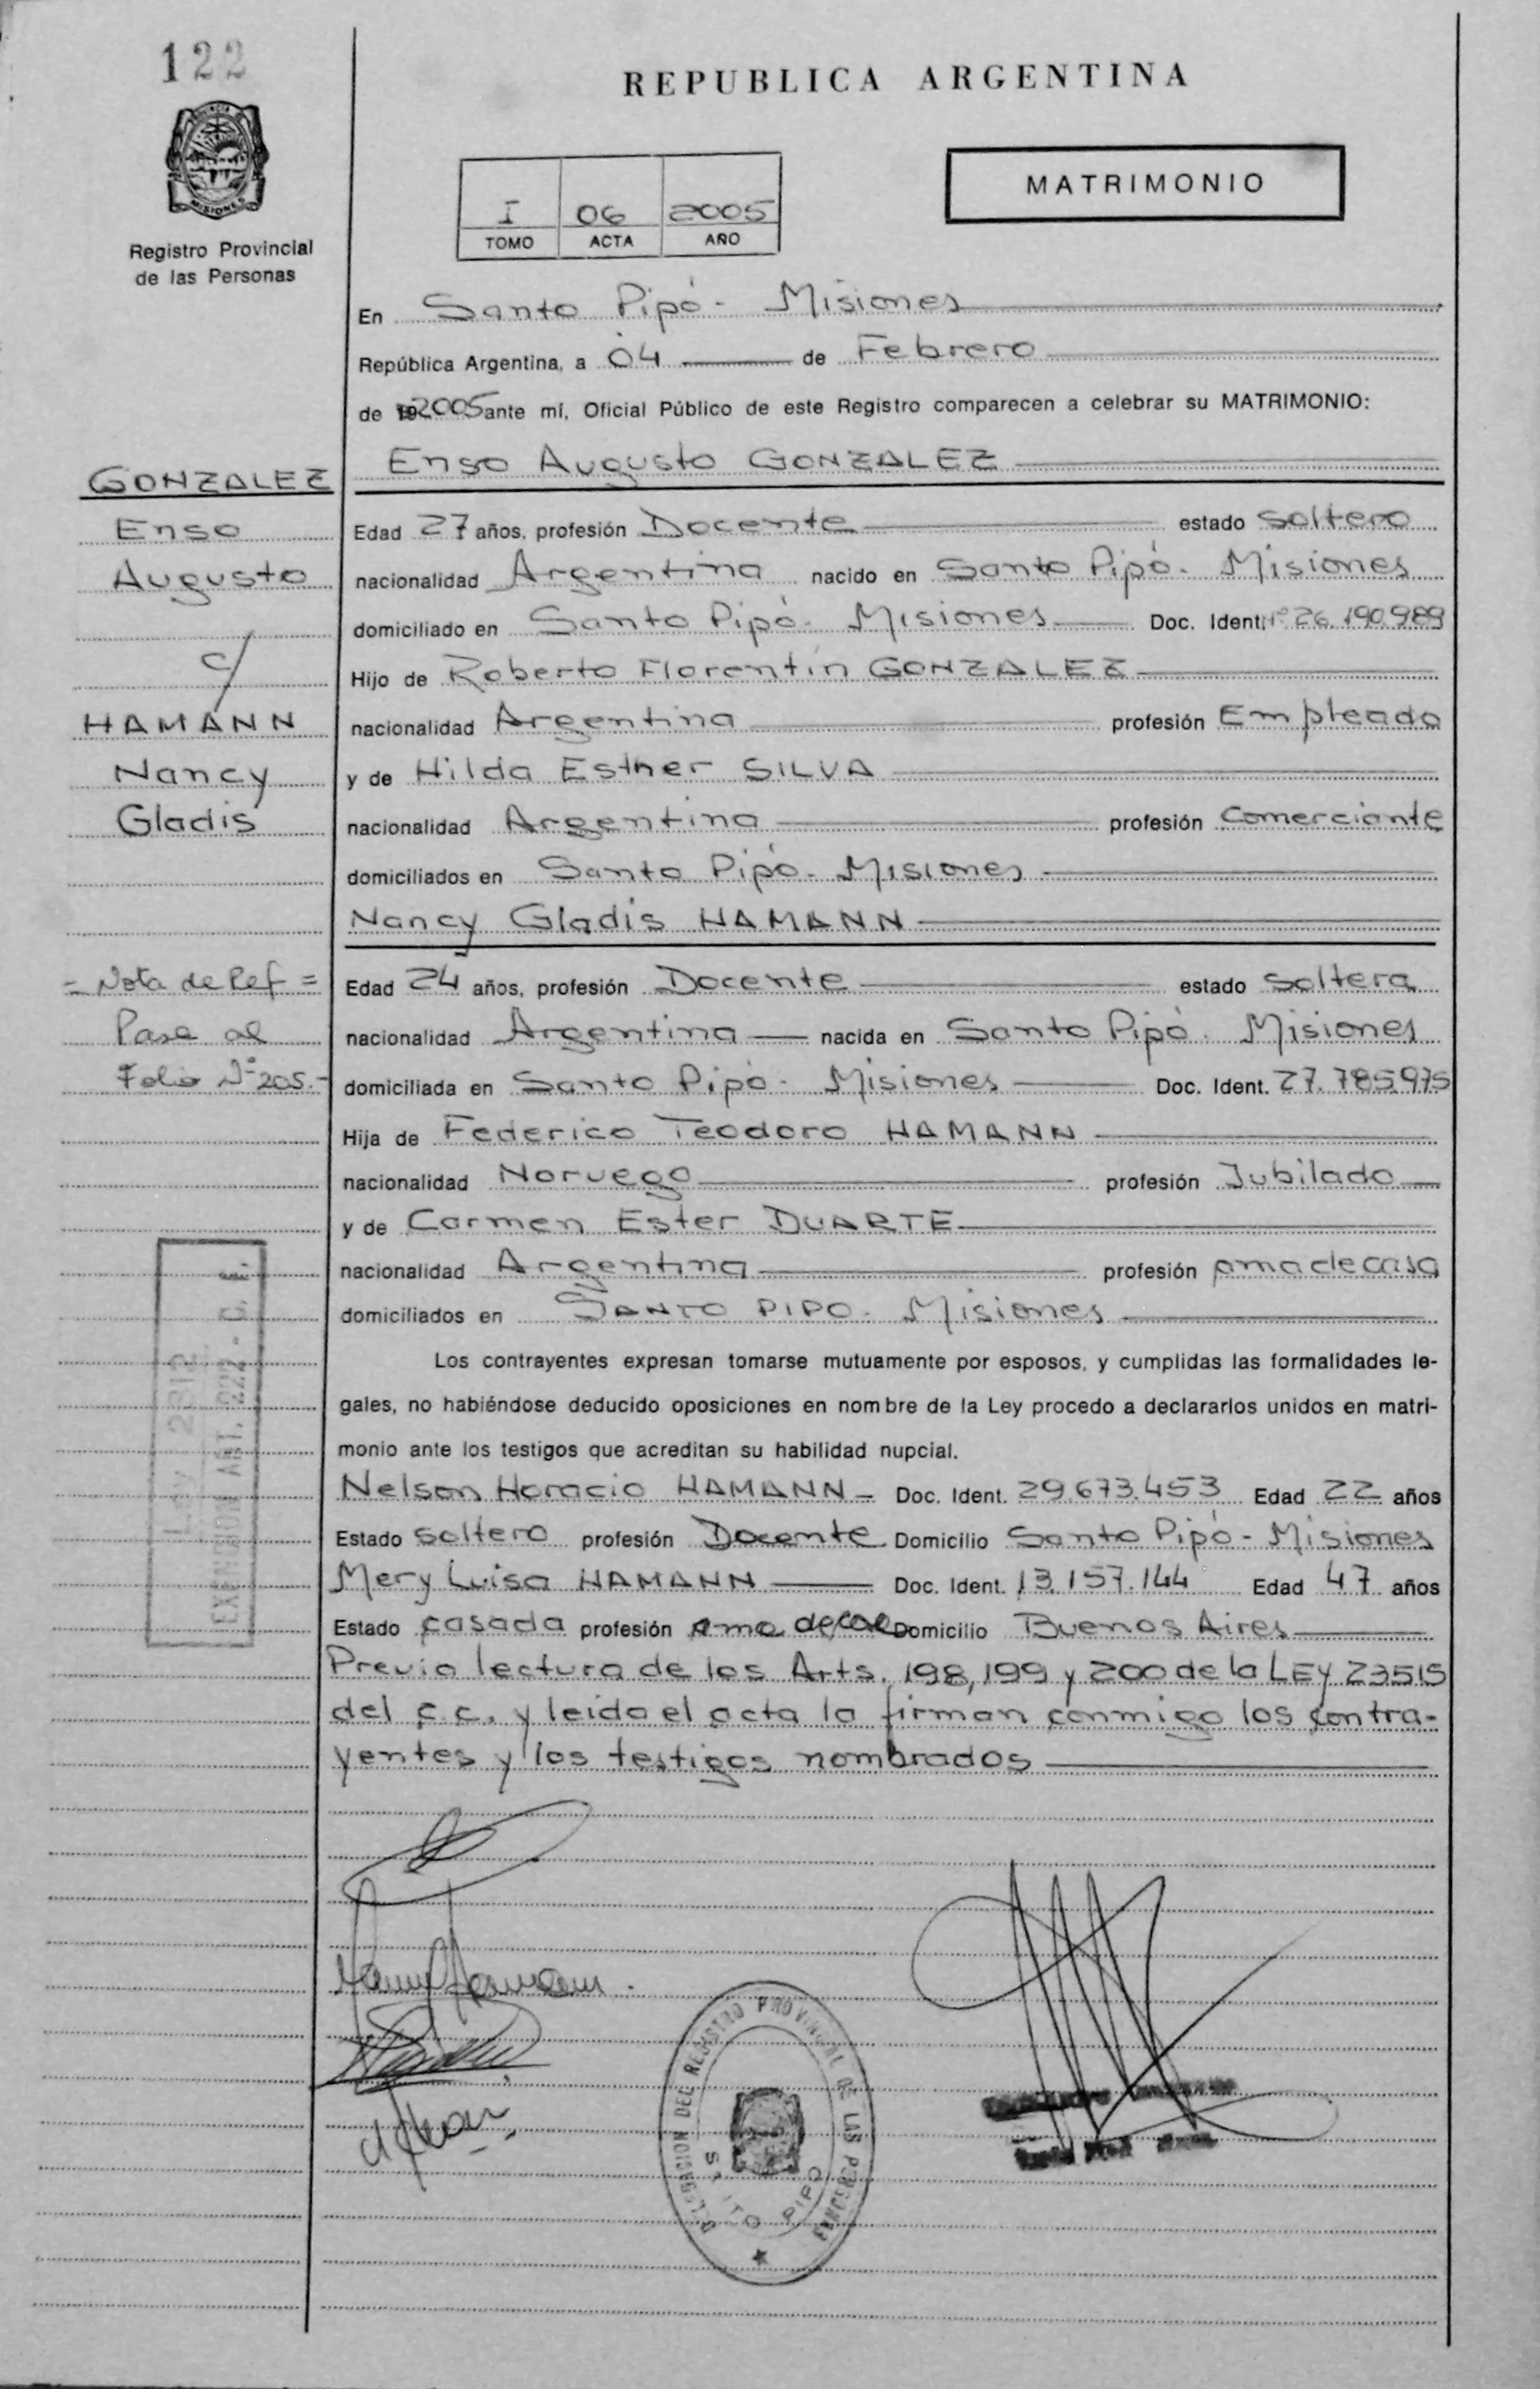 122
REPUBLICA ARGENTINA
MISIONES
Registro Provincial
de las Personas
I 06 2005
TOMO ACTA AÑO
MATRIMONIO
En Santo Pipó - Misiones
República Argentina, a 04 de Febrero
de 2005 ante mí, Oficial Público de este Registro comparecen a celebrar su MATRIMONIO:
Enso Augusto GONZALEZ
Edad 27 años, profesión Docente estado soltero
nacionalidad Argentina nacido en Santo Pipó. Misiones
domiciliado en Santo Pipó - Misiones Doc. Ident. Nº 26.190.989
Hijo de Roberto Florentín GONZALEZ
nacionalidad Argentina profesión Empleado
y de Hilda Esther SILVA
nacionalidad Argentina profesión comerciante
domiciliados en Santo Pipó - Misiones
Nancy Gladis HAMANN
Edad 24 años, profesión Docente estado soltera
nacionalidad Argentina nacida en Santo Pipó. Misiones
domiciliada en Santo Pipó - Misiones Doc. Ident. 27.785.975
Hija de Federico Teodoro HAMANN
nacionalidad Noruego profesión Jubilado
y de Carmen Ester DUARTE
nacionalidad Argentina profesión ama de casa
domiciliados en SANTO PIPO - Misiones
Los contrayentes expresan tomarse mutuamente por esposos, y cumplidas las formalidades le-
gales, no habiéndose deducido oposiciones en nombre de la Ley procedo a declararlos unidos en matri-
monio ante los testigos que acreditan su habilidad nupcial.
Nelson Horacio HAMANN - Doc. Ident. 29.673.453 Edad 22 años
Estado soltero profesión Docente Domicilio Santo Pipó - Misiones
Mery Luisa HAMANN Doc. Ident. 13.157.144 Edad 47 años
Estado casada profesión ama de casa Domicilio Buenos Aires
Previa lectura de los Arts. 198, 199 y 200 de la LEY 23515
del C.C. y leída el acta la firman conmigo los contra-
yentes y los testigos nombrados
GONZALEZ
Enso
Augusto
c/
HAMANN
Nancy
Gladis
= Nota de Ref =
Pase al
Folio Nº 205.-
EXENCION ART. 222 - C.
DELEGACION DEL REGISTRO PROVINCIAL DE LAS PERSONAS
STO PIPO